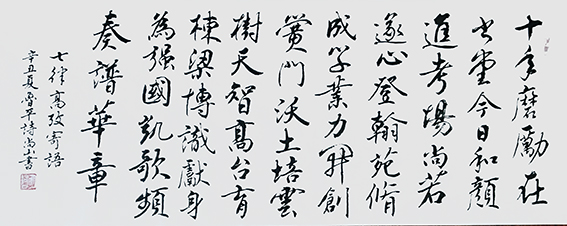 十年磨勵在
書堂今日和顏
進考場尚若
遂心登翰苑脩
成學業力開創
黌門沃土培雲
樹天智高台育
棟梁博識獻身
為強國凱歌頻
奏譜華章
七律高攷寄語
辛丑夏平詩尚山書